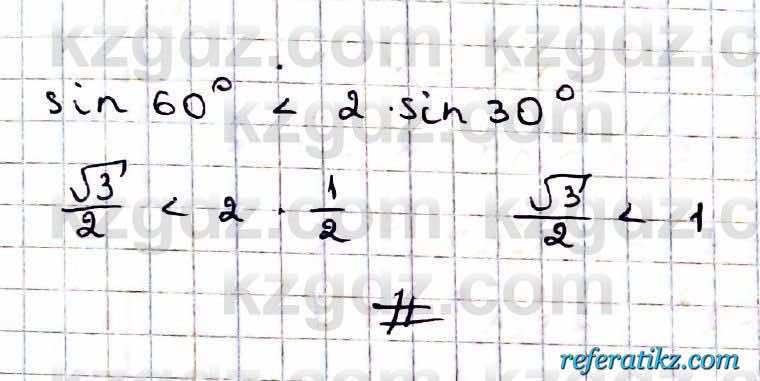 kzgdz.com
sin 60° < 2 · sin 30°
kzgdz.com
√3/2 < 2 · 1/2    √3/2 < 1
kzgdz.com
#
referatikz.com